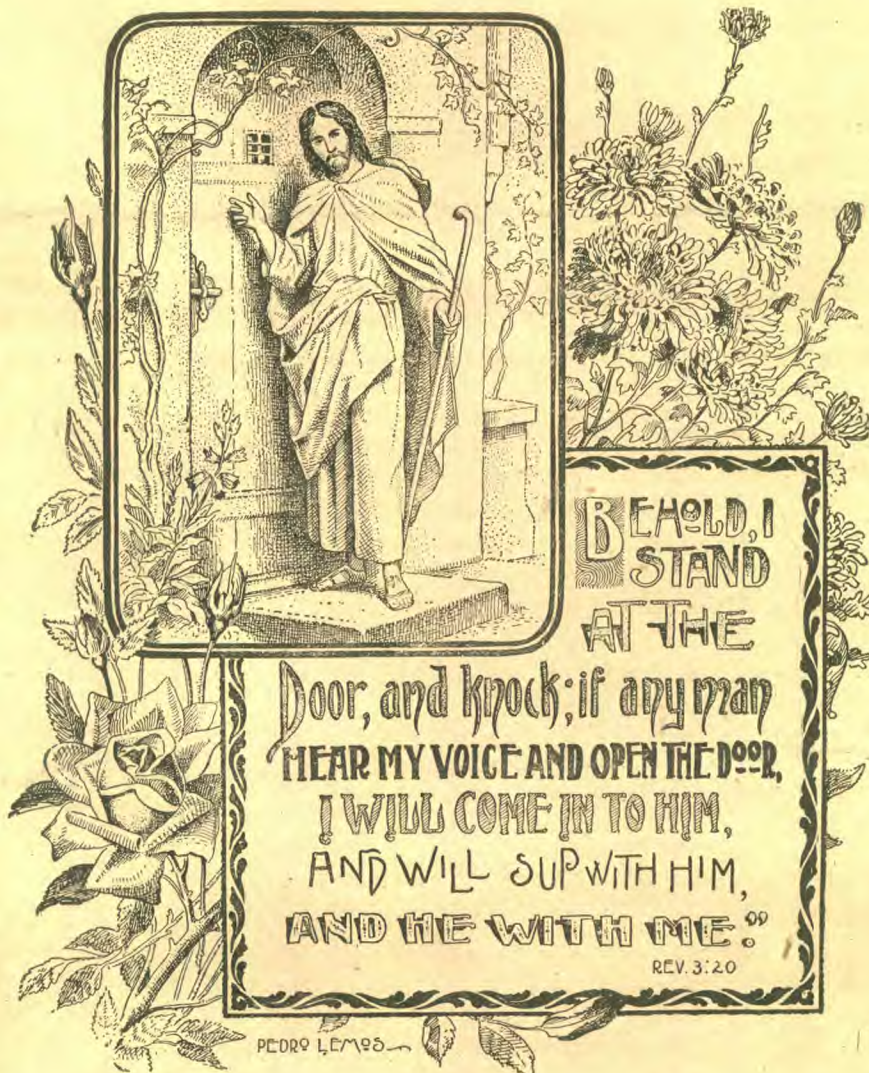 BEHOLD, I
STAND
AT THE
Door, and knock; if any man
HEAR MY VOICE AND OPEN THE DOOR,
I WILL COME IN TO HIM,
AND WILL SUP WITH HIM,
AND HE WITH ME."
REV. 3:20
PEDRO LEMOS